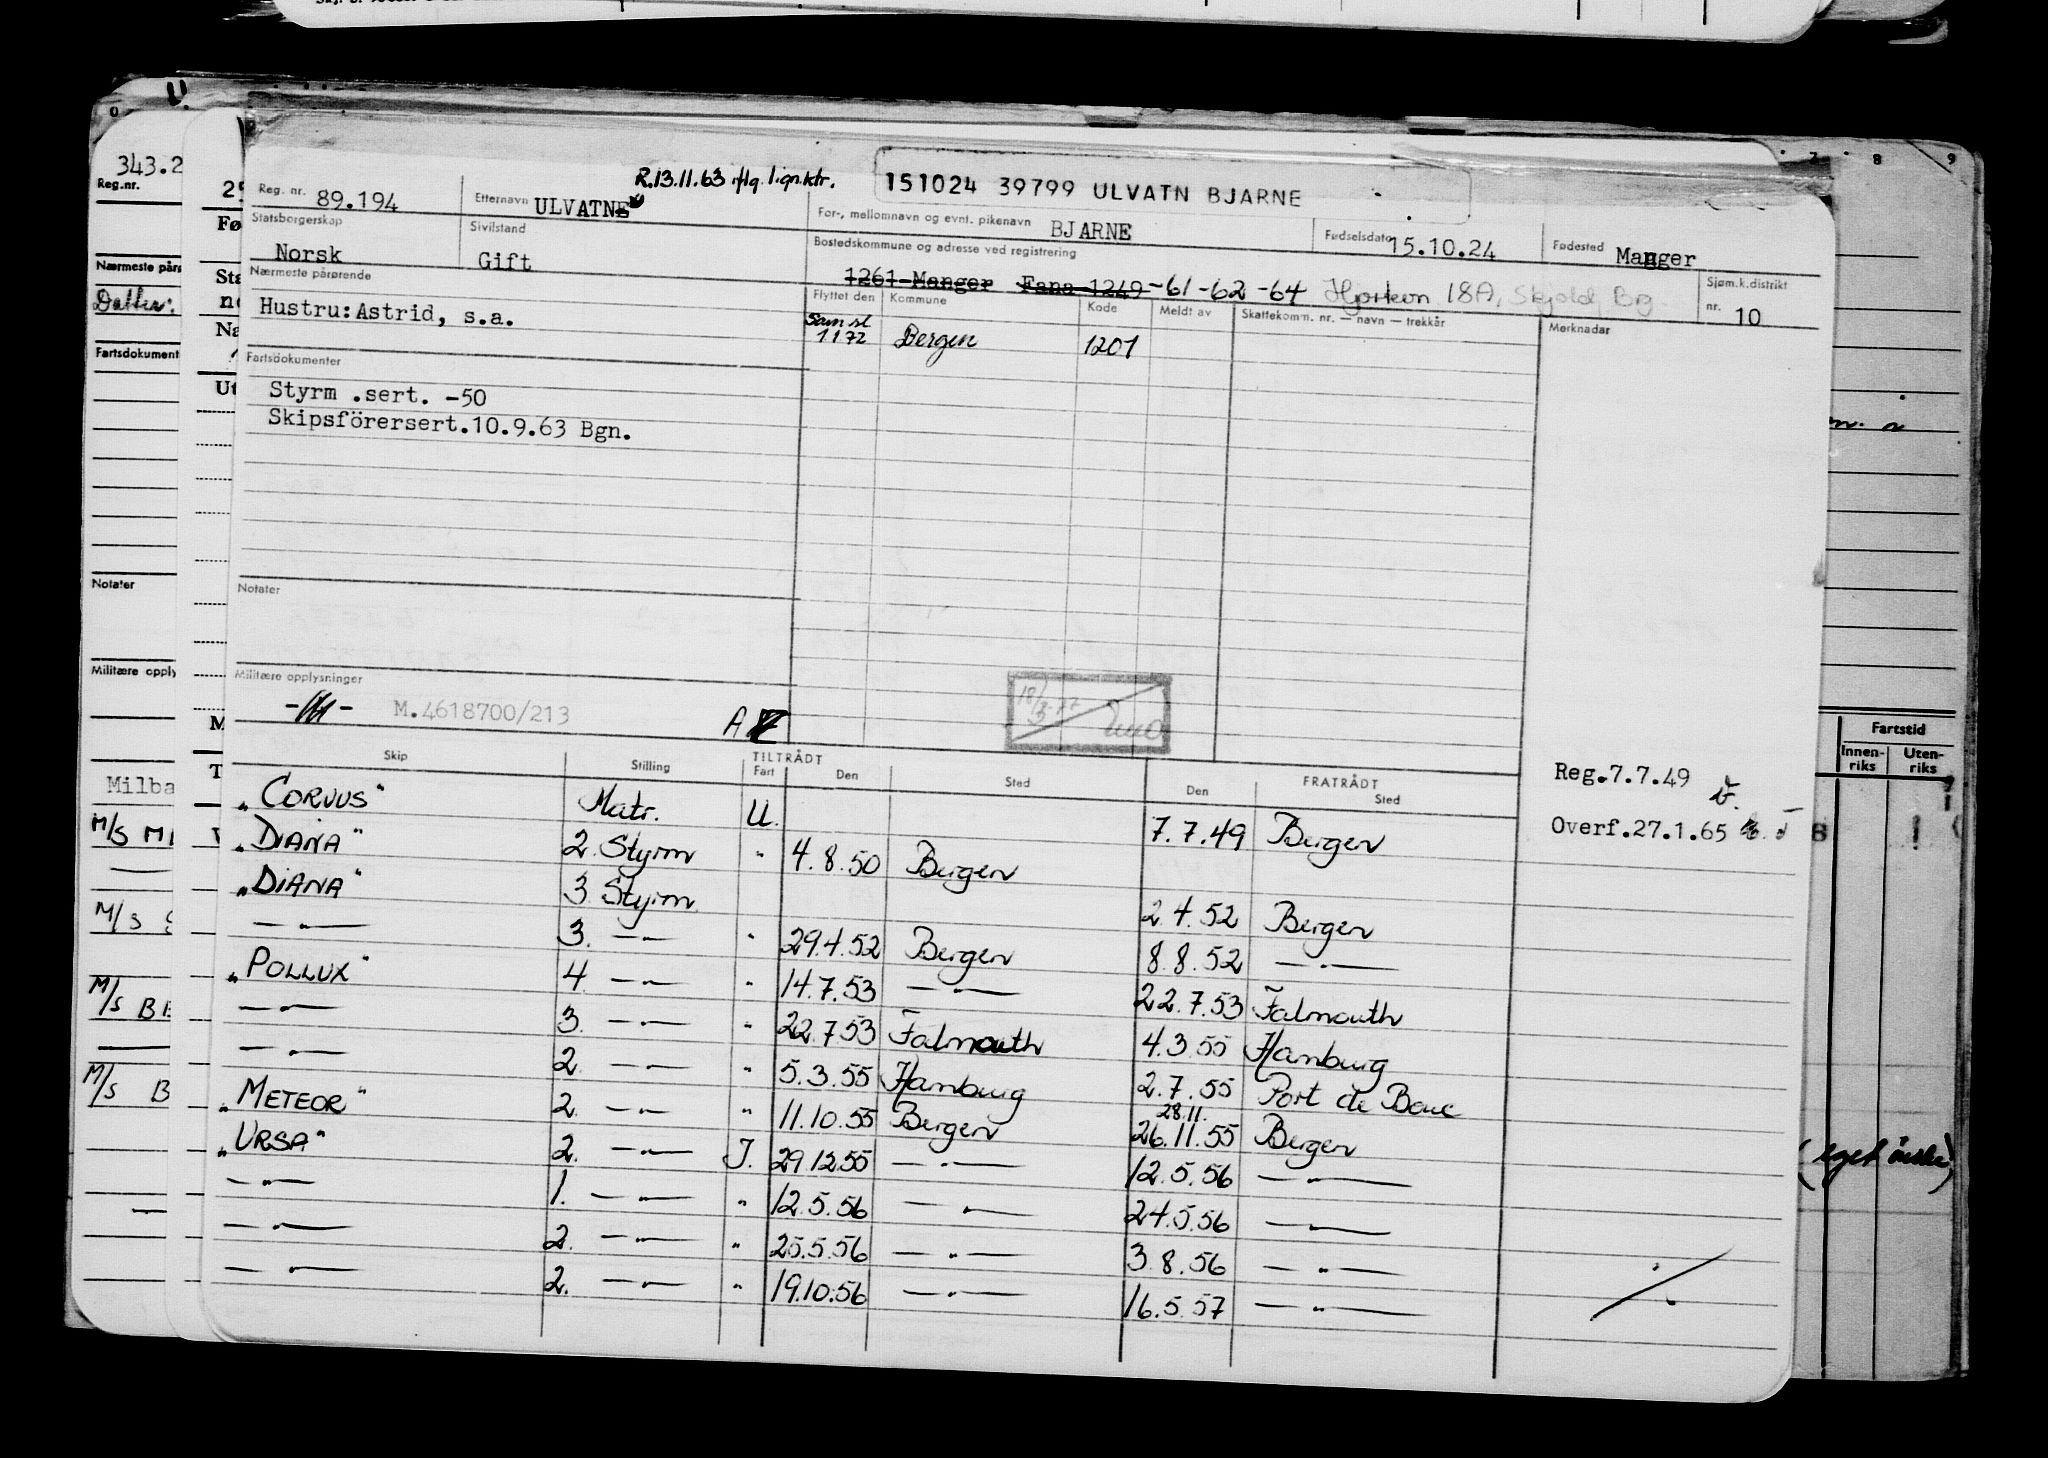 343.2
Reg.nr.
R.13.11.63 iflg. lign.ktr.
151024 39799 ULVATN BJARNE
Reg. nr. 89.194 Etternavn ULVATNE For-, mellomnavn og evnt. pikenavn BJARNE Fødselsdato 15.10.24 Fødested Manger
Statsborgerskap Norsk Sivilstand Gift Bostedskommune og adresse ved registrering
1261 Manger Fana 1249 -61 -62 -64 18A, Skjold, Bg Sjøm.k.distrikt nr. 10
Nærmeste pårørende
Hustru: Astrid, s.a.
Flyttet den Kommune Kode Meldt av Skattekomm. nr. — navn — trekkår Merknader
1 1 72 Bergen 1201
Fartsdokumenter
Styrm .sert. -50
Skipsförersert.10.9.63 Bgn.
Notater
Militære opplysninger
M.4618700/213 A
Skip Stilling TILTRÅDT Fart Den Sted FRATRÅDT Den Sted
Reg.7.7.49
Overf.27.1.65
"CORVUS" Matr. U. 7.7.49 Bergen
"DIANA" 2. Styrm " 4.8.50 Bergen
"DIANA" 3 Styrm 2.4.52 Bergen
—"— 3. —"— " 29.4.52 Bergen 8.8.52 —"—
"POLLUX" 4 —"— " 14.7.53 —"— 22.7.53 Falmouth
—"— 3. —"— " 22.7.53 Falmouth 4.3.55 Hamburg
—"— 2. —"— " 5.3.55 Hamburg 2.7.55 Port de Bouc
28.11.
"METEOR" 2. —"— " 11.10.55 Bergen 26.11.55 Bergen
"URSA" 2. —"— I. 29.12.55 —"— 12.5.56 —"—
—"— 1. —"— " 12.5.56 —"— 24.5.56 —"—
—"— 2. —"— " 25.5.56 —"— 3.8.56 —"—
—"— 2. —"— " 19.10.56 —"— 16.5.57 —"—
Nærmeste pårø
Datter:
Fartsdokument
Notater
Militære opply
Milba
M/S
M/S
M/S
M/S B
Fartstid
Innen-riks Uten-riks
(eget ønske)